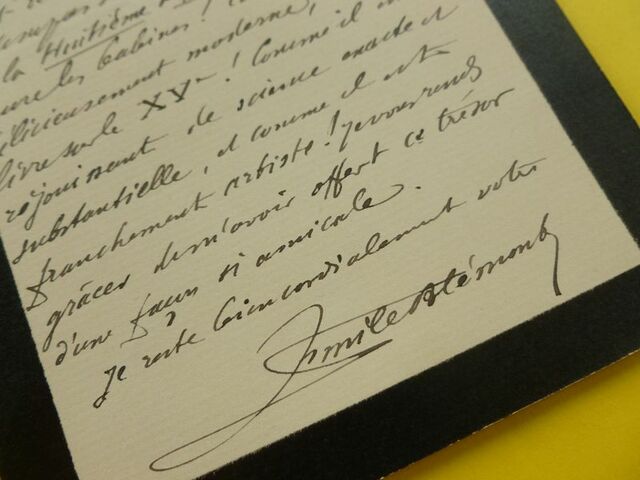 la Huitième
les Cabines !
délicieusement moderne,
livre sur le XVe ! Comme il
réjouissant de science exacte et
substantielle, et comme il est
franchement artiste ! Je vous rends
grâces de m'avoir offert ce trésor
d'une façon si amicale.
Je reste bien cordialement votre
Emile Blémont